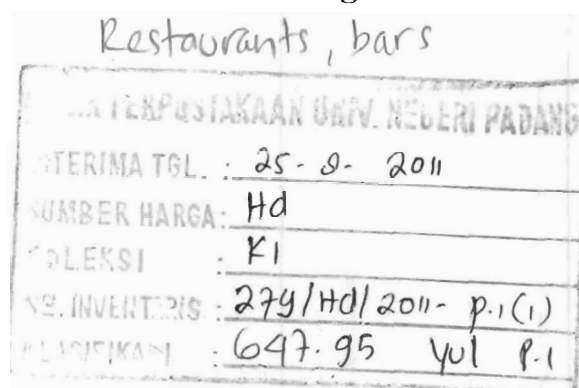 Restaurants, bars
PERPUSTAKAAN UNIV. NEGERI PADANG
DITERIMA TGL. : 25-9- 2011
SUMBER HARGA : Hd
KOLEKSI : KI
NO. INVENTARIS : 279/Hd/2011- p.1(1)
KLASIFIKASI : 647.95 Yul P.1